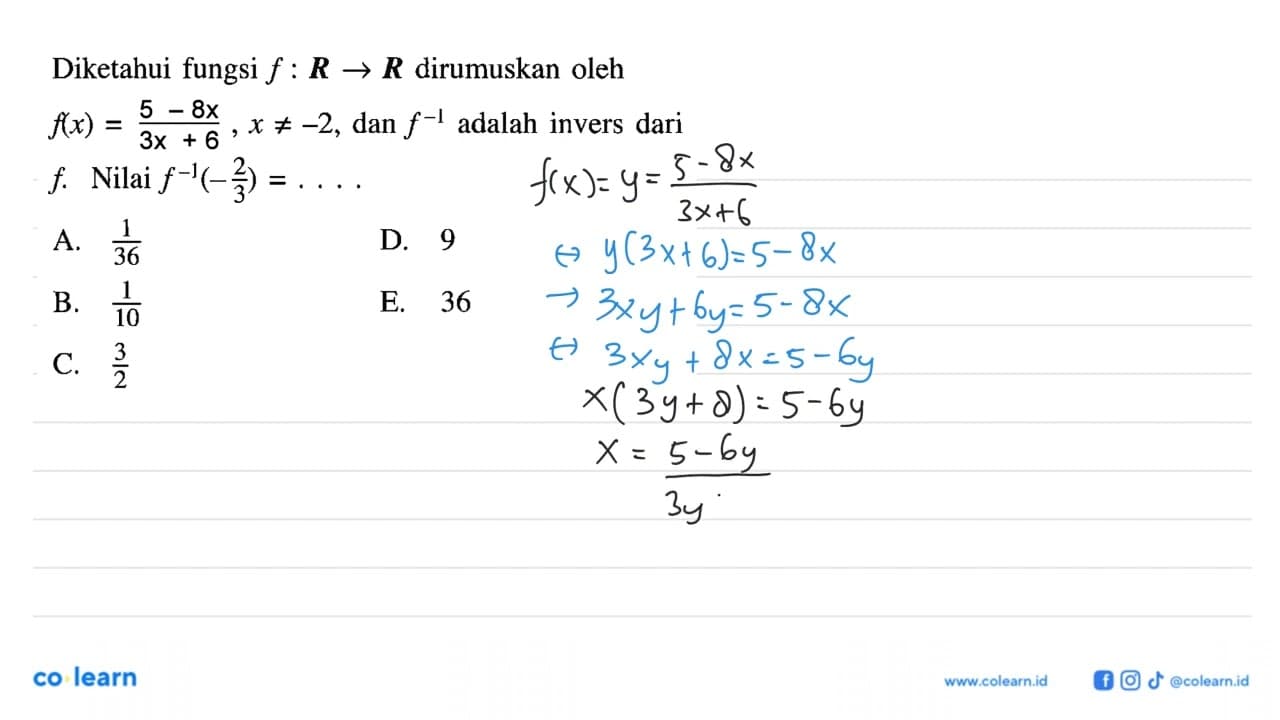 Diketahui fungsi f : R → R dirumuskan oleh
f(x) = (5 - 8x)/(3x + 6) , x ≠ -2, dan f^-1 adalah invers dari
f. Nilai f^-1(-2/3) = . . . .
A. 1/36
B. 1/10
C. 3/2
D. 9
E. 36
f(x) = y = (5 - 8x)/(3x + 6)
↔ y(3x + 6) = 5 - 8x
→ 3xy + 6y = 5 - 8x
↔ 3xy + 8x = 5 - 6y
x(3y + 8) = 5 - 6y
x = (5 - 6y)/3y
co learn
www.colearn.id
@colearn.id